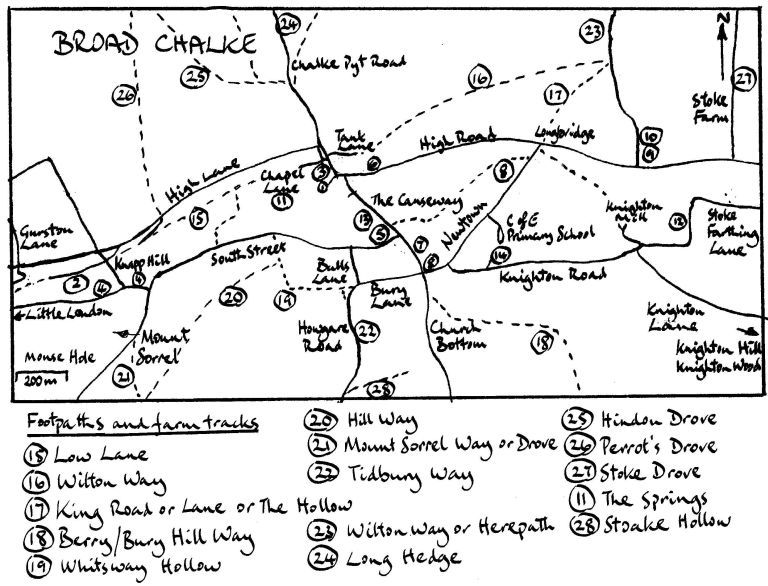 BROAD CHALKE
24
23
N
27
25
26
Chalke Pyt Road
16
17
Stoke
Farm
Tank
Lane
High Road
Longbridge
10
9
High Lane
3
6
Chapel
Lane
11
8
15
The Causeway
13
5
7
Newtown
C of E
Primary School
Knighton
Mill
12
Stoke
Farthing
Lane
Gurston
Lane
Knapp Hill
South Street
14
Knighton Road
2
4
4
Bulls
Lane
20
19
Bury
Lane
Little London
Mount
Sorrel
Howgare
Road
22
Church
Bottom
18
Knighton
Lane
Knighton Hill
Knighton Wood
Mouse Hole
200m
21
28
Footpaths and farm tracks
15 Low Lane
16 Wilton Way
17 King Road or Lane or The Hollow
18 Berry/Bury Hill Way
19 Whitsway Hollow
20 Hill Way
21 Mount Sorrel Way or Drove
22 Tidbury Way
23 Wilton Way or Herepath
24 Long Hedge
25 Hindon Drove
26 Perrot's Drove
27 Stoke Drove
11 The Springs
28 Stoake Hollow